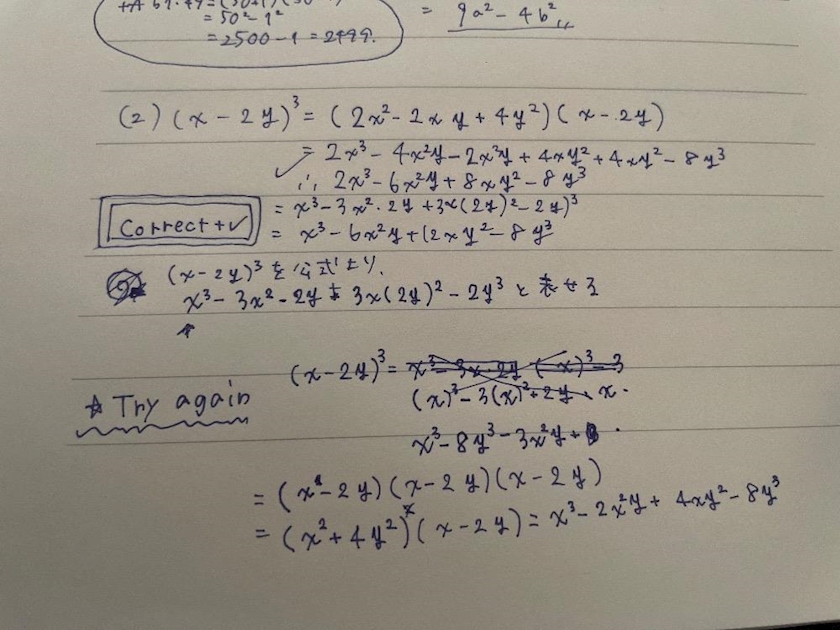 = 50² - 1²
= 2500 - 1 = 2499.
= 9a² - 4b²
(2) (x - 2y)³ = (2x² - 2xy + 4y²)(x - 2y)
= 2x³ - 4x²y - 2x²y + 4xy² + 4xy² - 8y³
∴ 2x³ - 6x²y + 8xy² - 8y³
= x³ - 3x²・2y + 3x(2y)² - 2y)³
Correct + ✓
= x³ - 6x²y + 12xy² - 8y³
(x - 2y)³ を公式より,
x³ - 3x² - 2y + 3x(2y)² - 2y³ と表せる
(x - 2y)³ =
(x)³ - 3(x)² + 2y x.
☆ Try again
x³ - 8y³ - 3x²y +
= (x - 2y)(x - 2y)(x - 2y)
= (x² + 4y²)(x - 2y) = x³ - 2x²y + 4xy² - 8y³